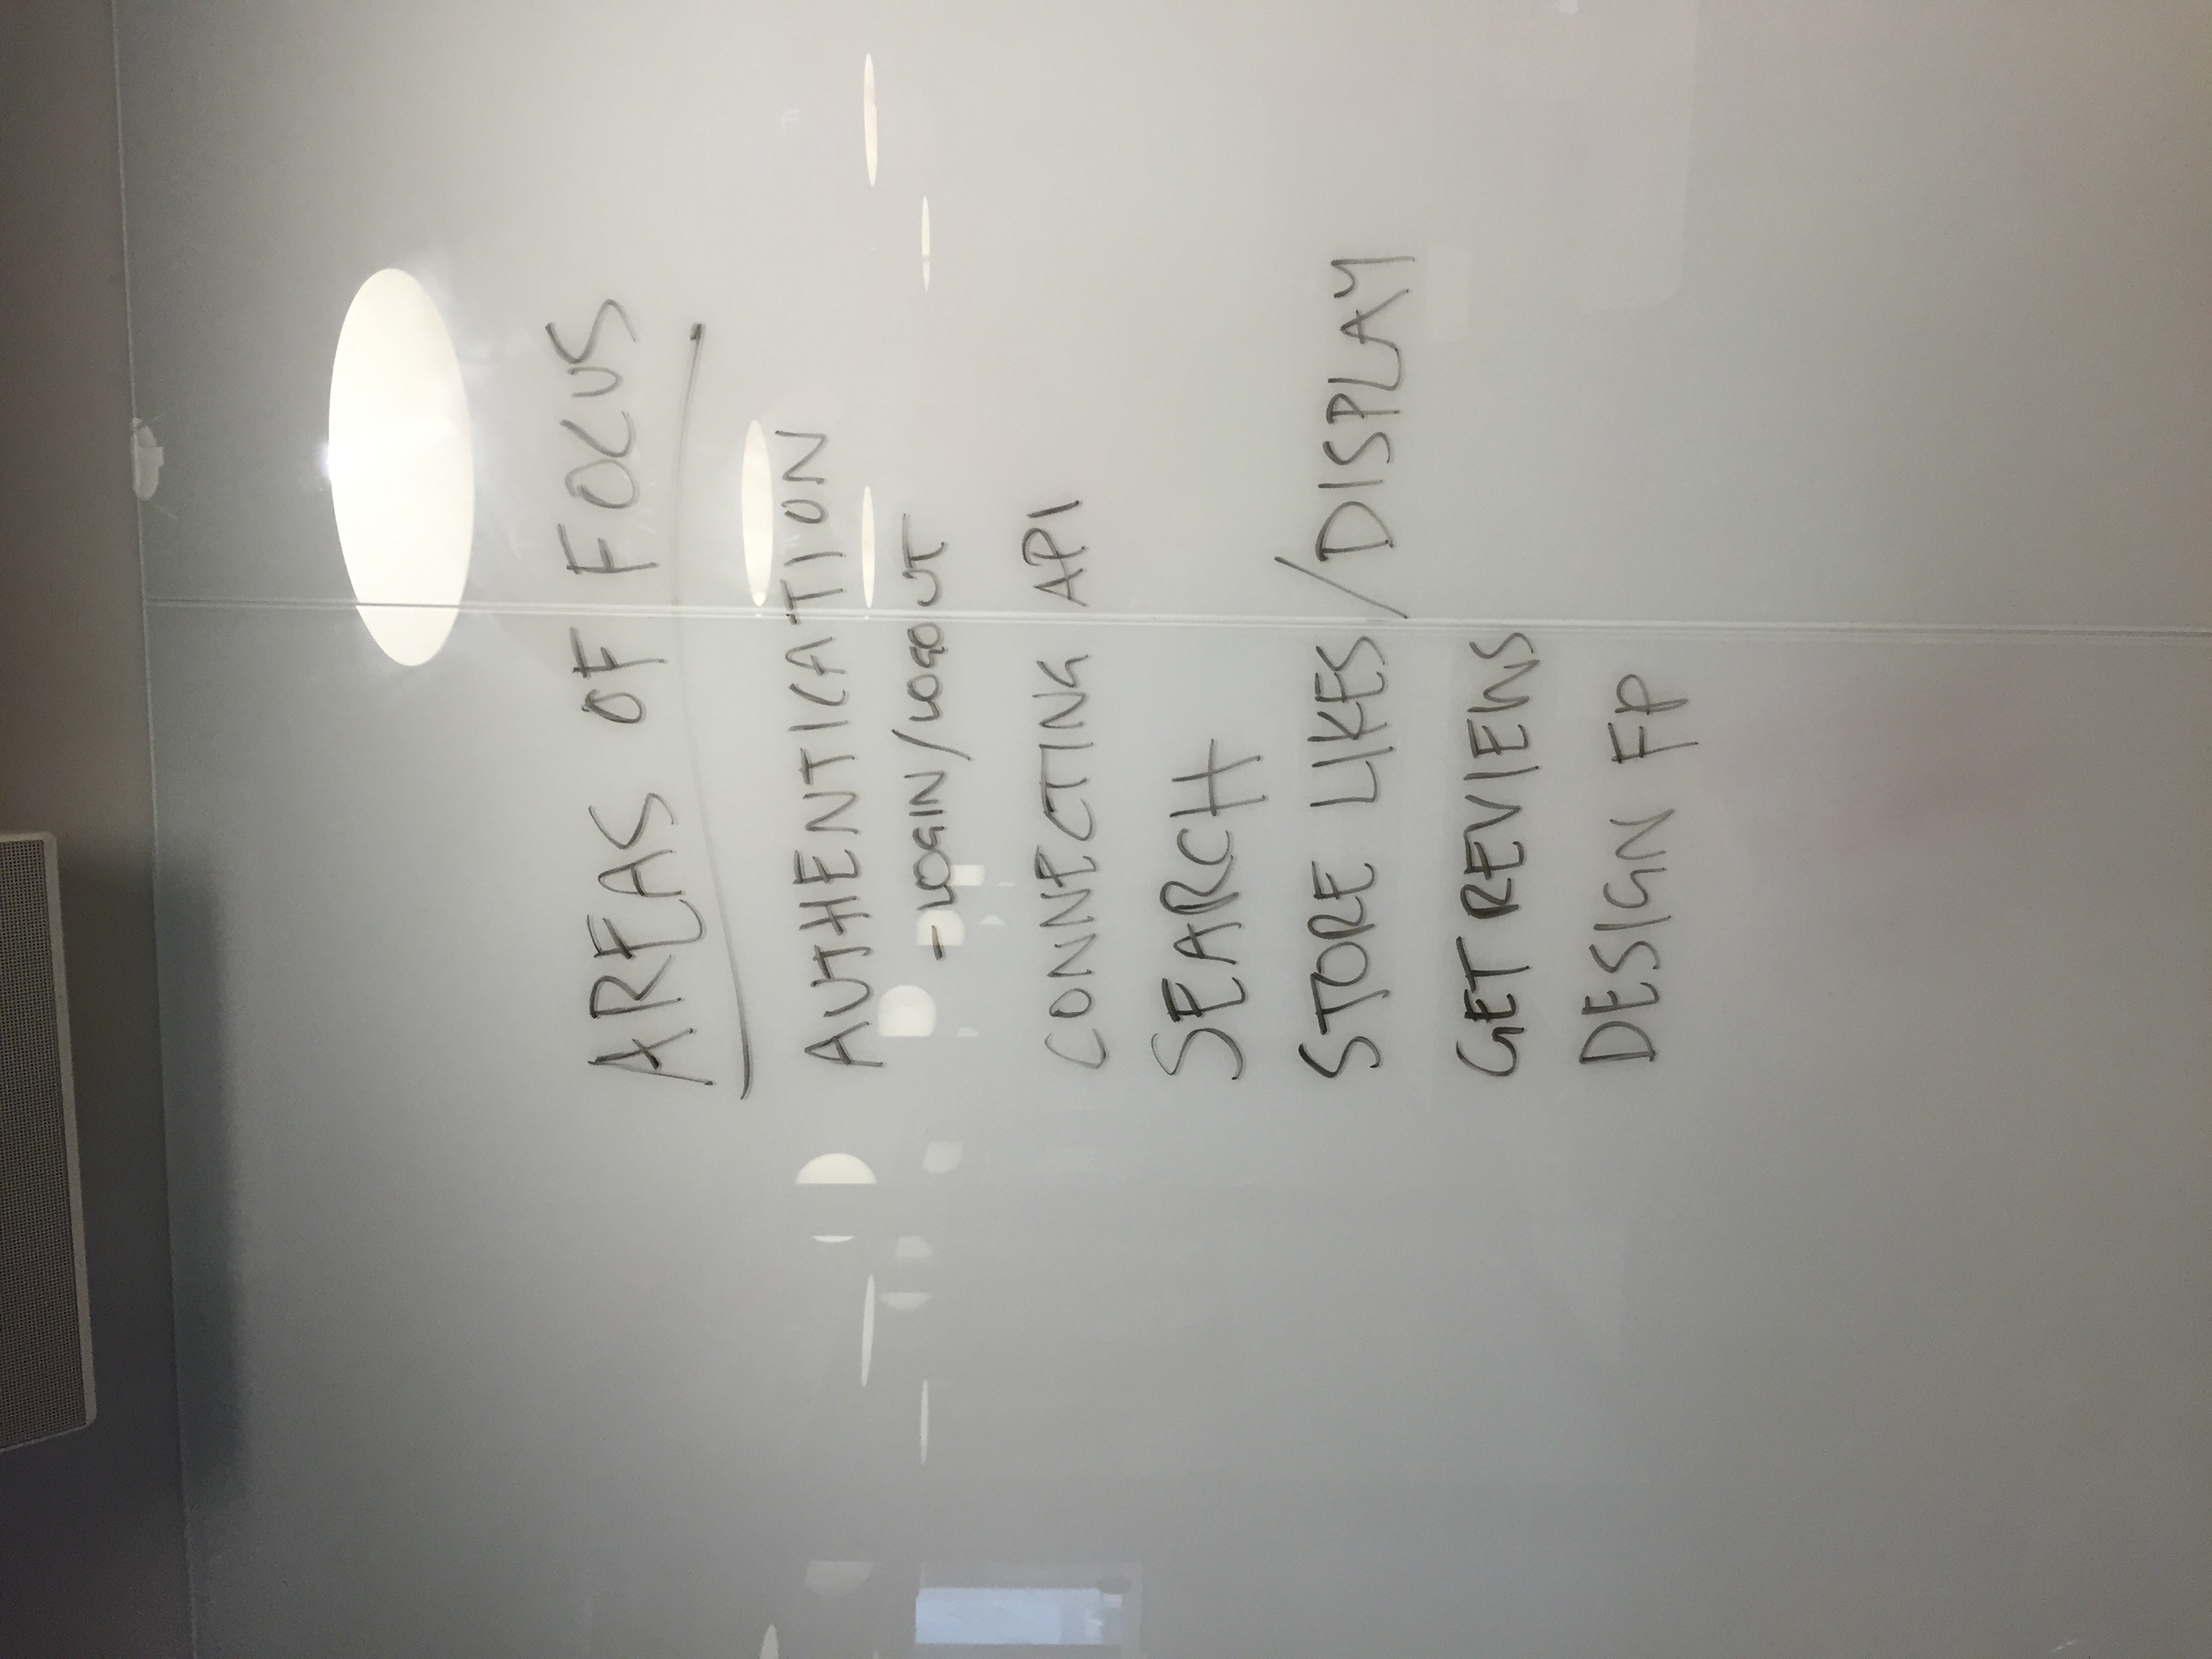 AREAS OF FOCUS
AUTHENTICATION
- LOGIN/LOGOUT
CONNECTING API
SEARCH
STORE LIKES/DISPLAY
GET REVIEWS
DESIGN FP